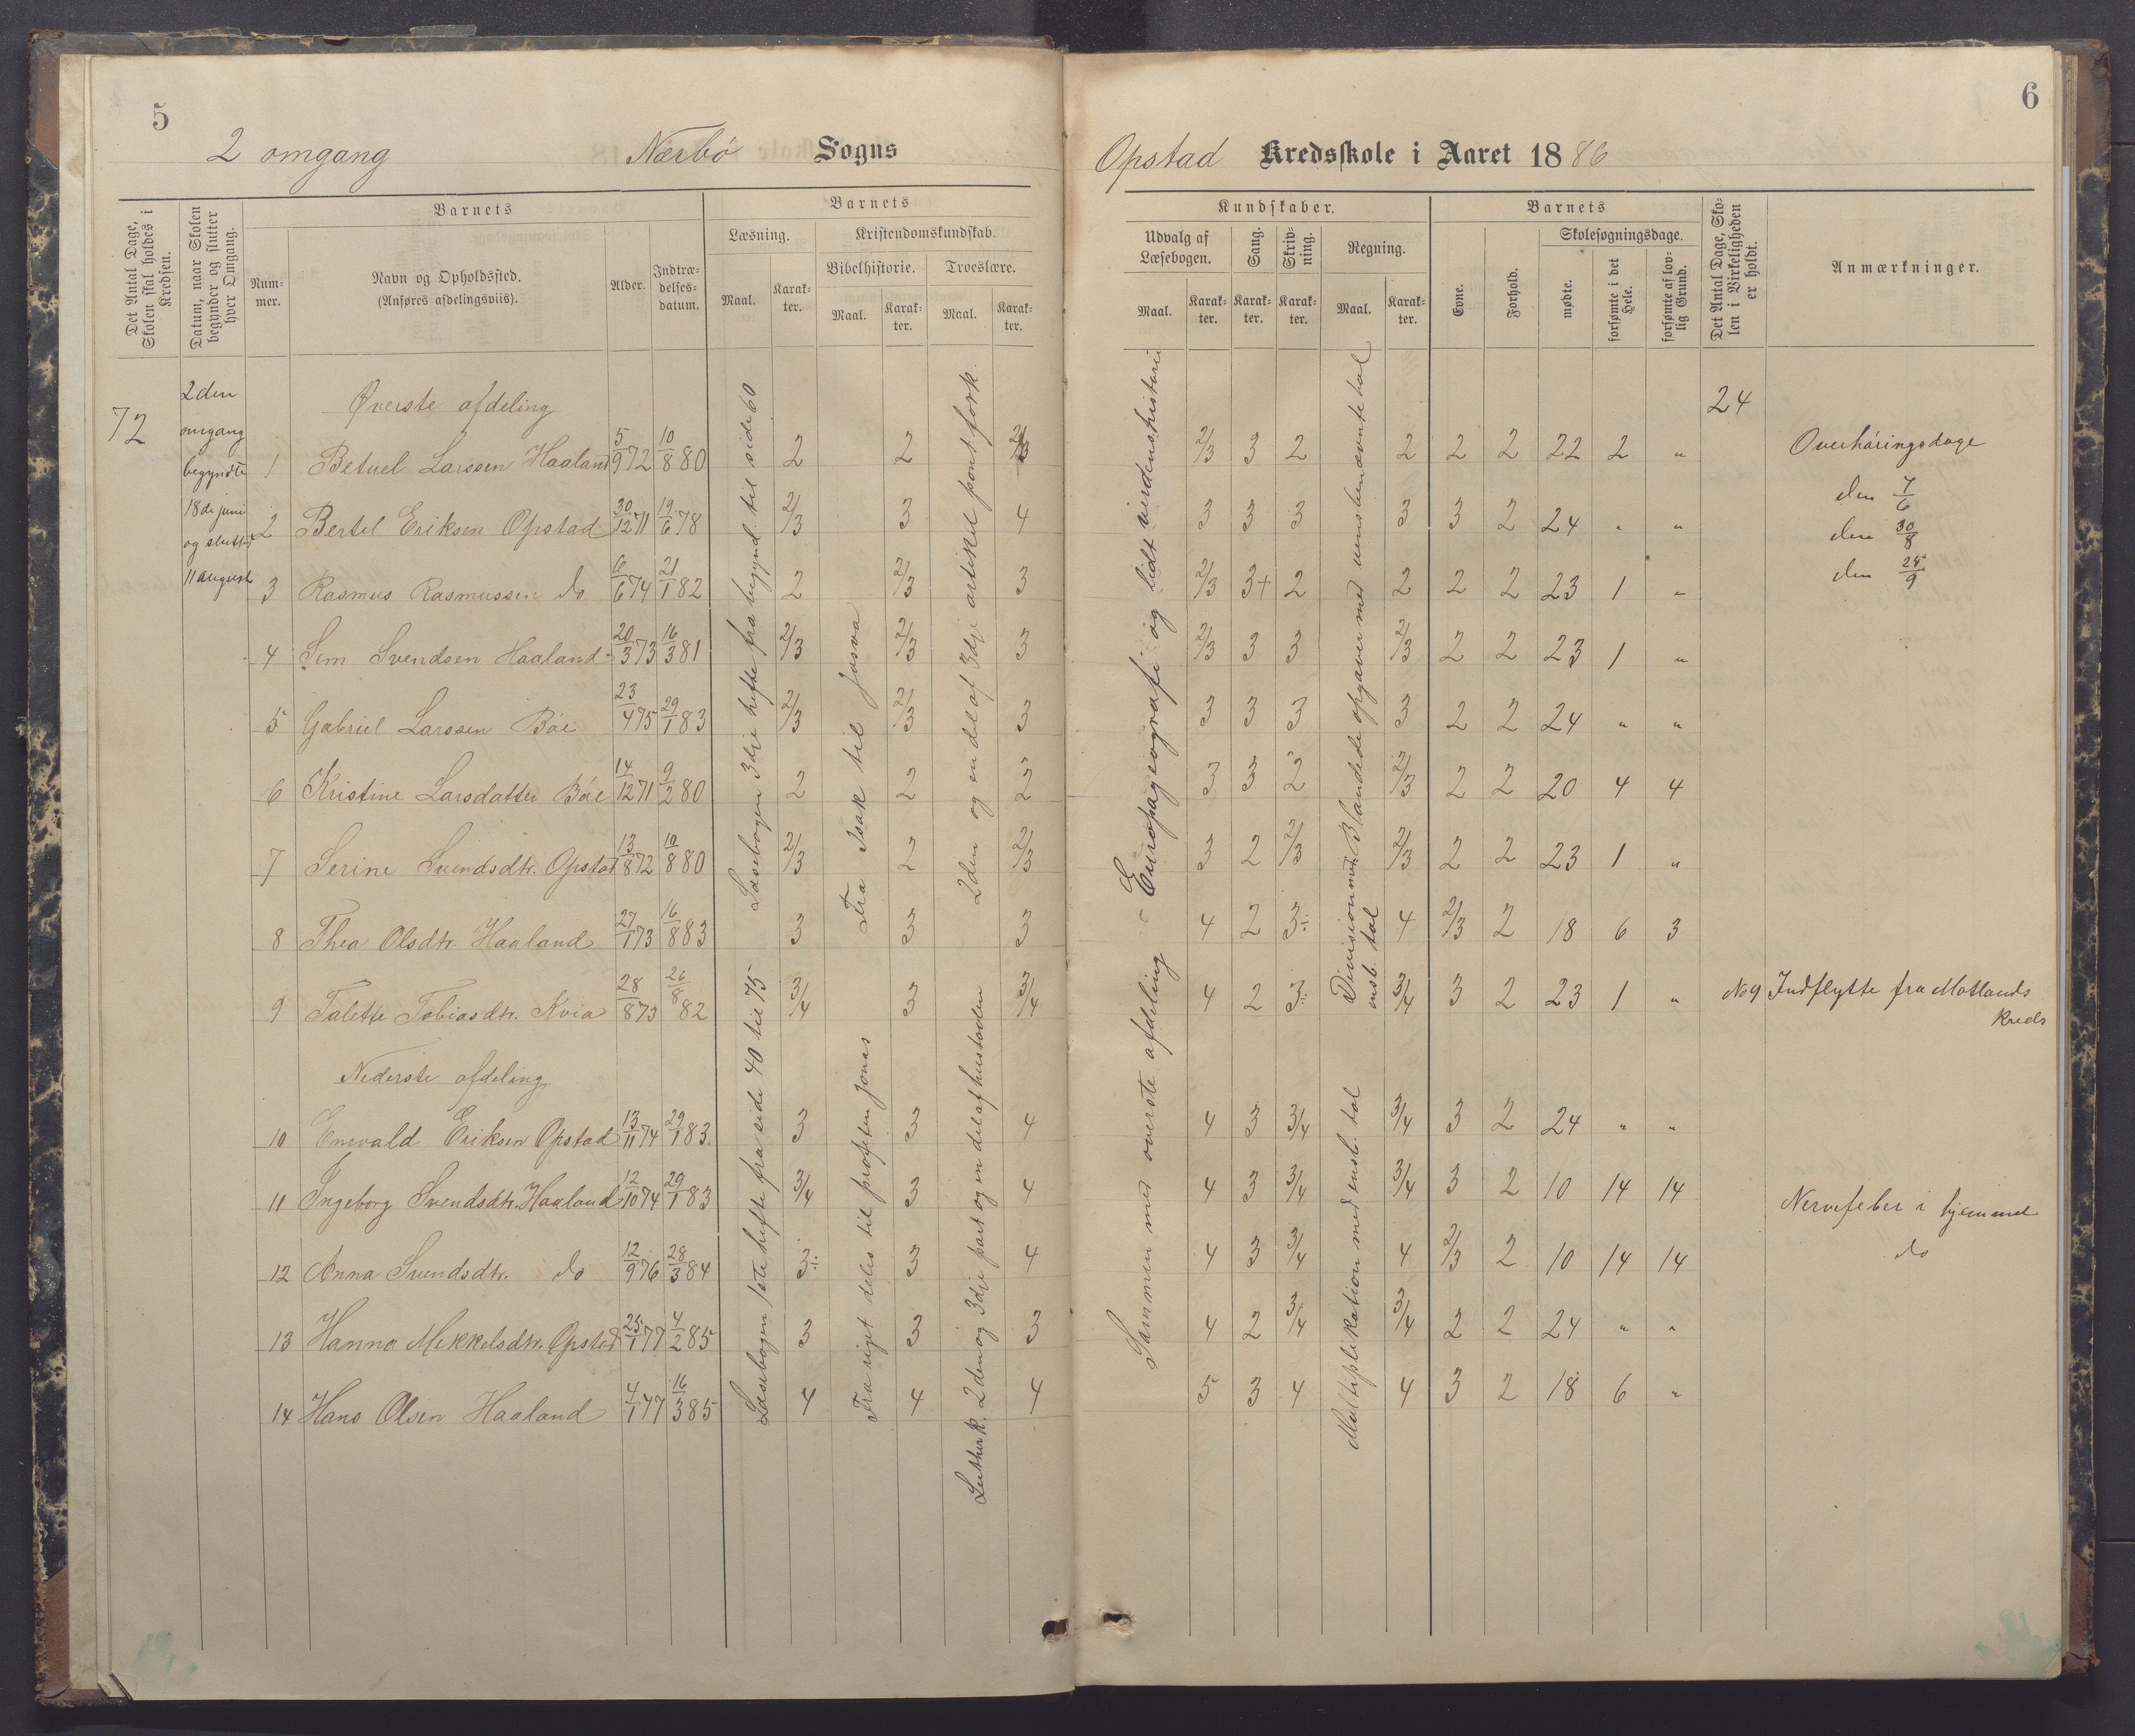 5
2 omgang Nærbö Sogns
Det Antal Dage, Skolen skal holdes i Kredsen.
Datum, naar Skolen begynder og slutter hver Omgang.
Barnets
Num-
mer.
Navn og Opholdssted.
(Anføres afdelingsviis).
Alder.
Indtræ-
delses-
datum.
Barnets
Læsning.
Kristendomskundskab.
Bibelhistorie. Troeslære.
Maal. Karak-
ter.
Maal. Karak-
ter.
Maal. Karak-
ter.
72
2den
omgang
begyndte
18de juni
og sluttet
11 august
Øverste afdeling
1 Betuel Larssen Haaland 5/9 72 10/8 80 2 2 2/3
2 Bertel Eriksen Opstad 30/12 71 19/6 78 2/3 3 4
3 Rasmus Rasmussen do 6/6 74 21/1 82 2 2/3 3
4 Sem Svendsen Haaland 20/3 73 16/3 81 2/3 2/3 3
5 Gabriel Larssen Böe 23/4 75 29/1 83 2/3 2/3 3
6 Kristine Larsdatter Böe 14/12 71 9/2 80 2 2 2
7 Serine Svendsdtr. Opstad 13/8 72 10/8 80 2/3 2 2/3
8 Thea Olsdtr. Haaland 27/1 73 16/8 83 3 3 3
9 Talette Tobiasdtr. Kvia 28/8 73 26/8 82 3/4 3 3/4
Nederste afdeling
10 Enevald Eriksen Opstad 13/11 74 29/1 83. 3 3 4
11 Ingeborg Svendsdtr. Haaland 12/10 74 29/1 83 3/4 3 4
12 Anna Svendsdtr. do 12/9 76 28/3 84 3÷ 3 4
13 Hanna Mikkelsdtr. Opstad 25/1 77 4/2 85 3 3 3
14 Hans Olsen Haaland 4/1 77 16/3 85 4 4 4
Læsebogen 3die hefte fra begynd. til side 60
Fra Isak til Josva
2den og en del af 3dje artikel pont. fork.
Læsebogen 1ste hefte fra side 40 til 75
Fra riget deles til profeten Jonas
Luther k. 2den og 3die part og en del af hustavlen
6
Opstad Kredsskole i Aaret 1886
Kundskaber.
Udvalg af
Læsebogen.
Sang.
Skriv-
ning.
Regning.
Maal. Karak-
ter.
Karak-
ter.
Karak-
ter.
Maal. Karak-
ter.
Barnets
Evne.
Forhold.
Skolesøgningsdage.
mødte.
forsømte i det
Hele.
forsømte af lov-
lig Grund.
Det Antal Dage, Sko-
len i Virkeligheden
er holdt.
Anmærkninger.
24
2/3 3 2 2 2 2 22 2 " Overhöringsdage
3 3 3 3 3 2 24 " " den 7/6
den 30/8
2/3 3+ 2 2 2 2 23 1 " den 25/9
2/3 3 3 2/3 2 2 23 1 "
3 3 3 3 2 2 24 " "
3 3 2 2/3 2 2 20 4 4
3 2 2/3 2/3 2 2 23 1 "
4 2 3÷ 4 2/3 2 18 6 3
4 2 3÷ 3/4 3 2 23 1 " No 9 Indflytte fra Motlands
Kreds
4 3 3/4 3/4 3 2 24 " "
4 3 3/4 3/4 3 2 10 14 14 Nervefeber i hjemmet
4 3 3/4 4 2/3 2 10 14 14 do
4 2 3/4 3/4 2 2 24 " "
5 3 4 4 3 2 18 6 "
Europageografi og lidt verdenshistorie
Sammen med øverste afdeling
Blandede opgaver med uensbenævnte tal
Division med
ensb. tal
Multiplikation med ensb. tal